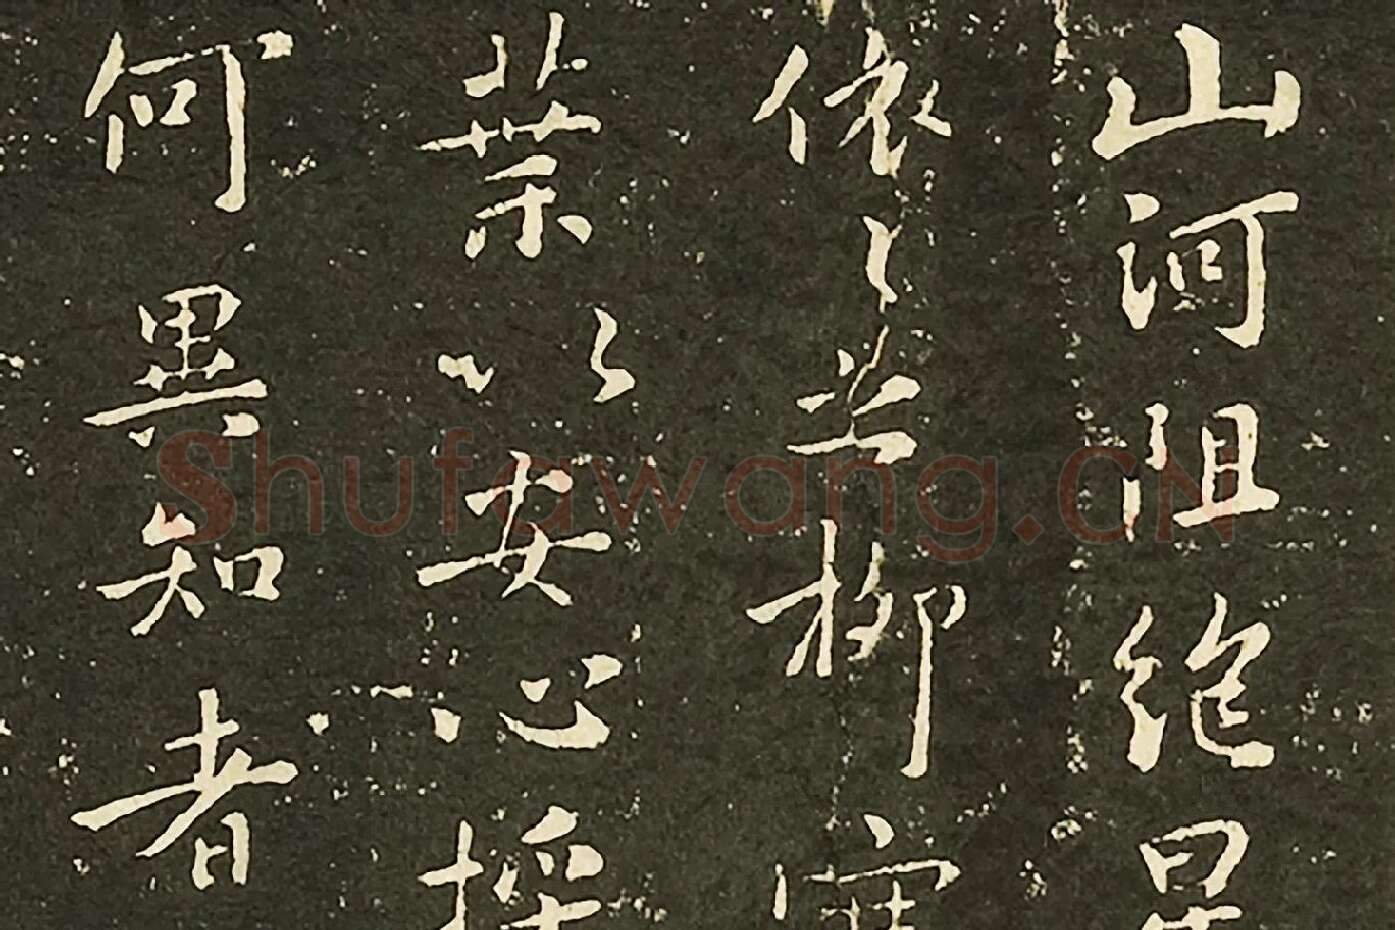 山河阻絕星
依〻柳
葉以安心採
何異知者
Shufawang.CN